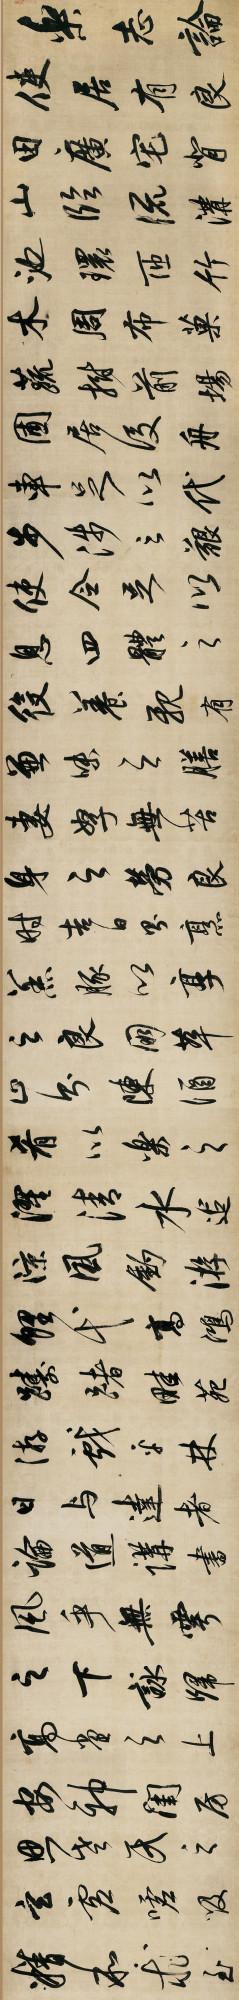 樂志論
使居有良
田廣宅背
山臨流溝
池環匝竹
木周布菓
蔬樹前場
圃居後舟
車足以代
步涉之艱
使令足以
息四體之
役養親有
兼味之膳
妻孥無苦
身之勞良
時吉日則烹
羔豚以奉
之良朋萃
止則陳酒
肴以樂之
濯清水追
涼風釣游
鯉弋高鴻
躊躇畦苑
游戲平林
日與達者
論道講書
風乎舞雩
之下詠歸
高堂之上
安神閨房
思老氏之
玄虛呼吸
精和求至